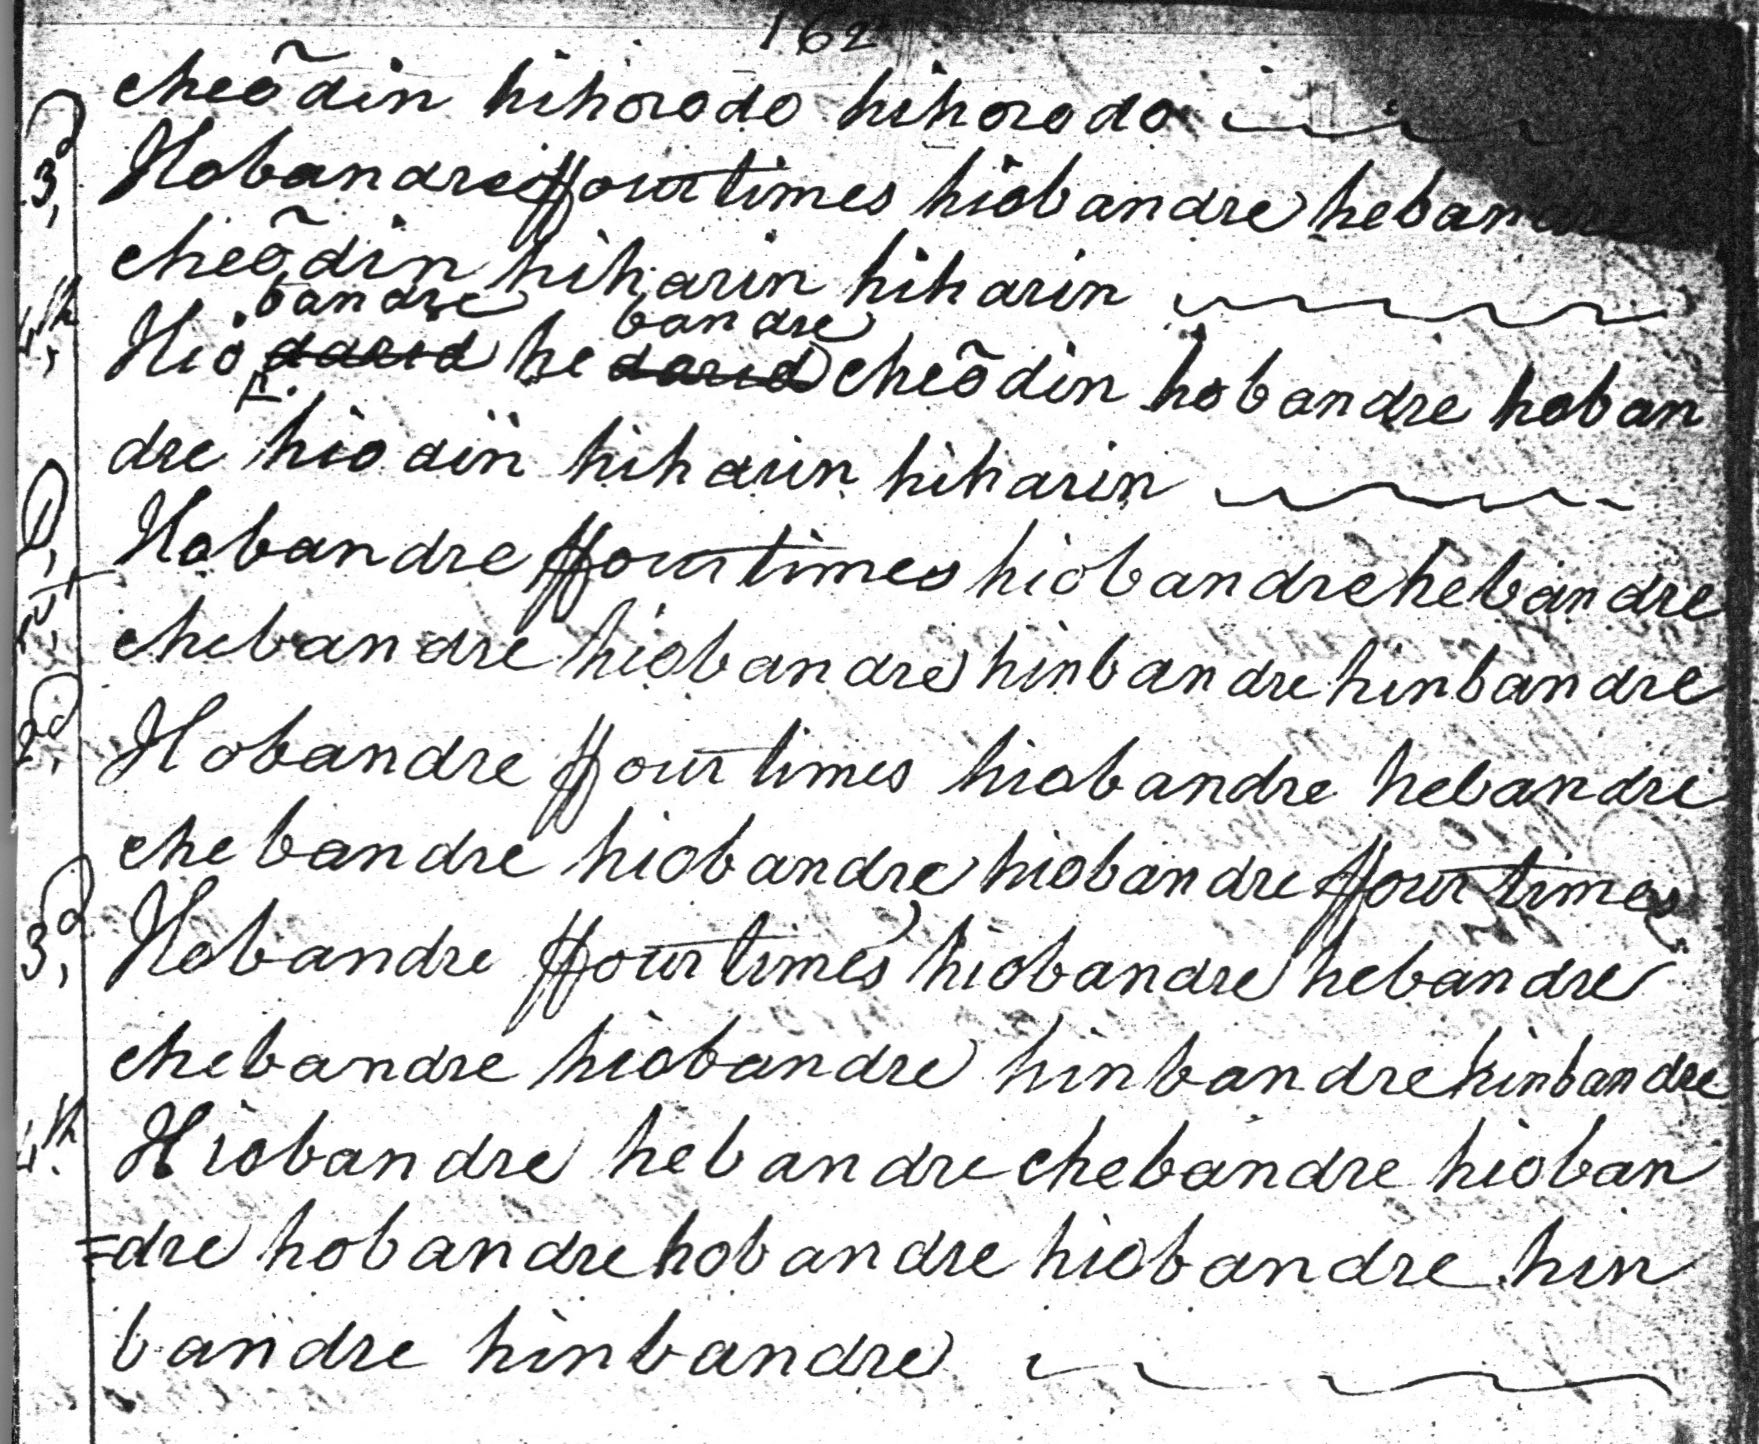 162
cheõdin hihorodo hihorodo
3d, Hobandre ffour times hiobandre hebandre
cheõdin hiharin hiharin
bandre bandre
4th, Hio darid he darid cheõdin hobandre hoban
dre hiodin hiharin hiharin
D, Hobandre ffour times hiobandre hebandre
chebandre hiobandre hinbandre hinbandre
2d, Hobandre ffour times hiobandre hebandre
chebandre hiobandre hiobandre ffour times
3d, Hobandre ffour times hiobandre hebandre
chebandre hiobandre hinbandre hinbandre
4th. Hiobandre hebandre chebandre hioban
=dre hobandre hobandre hiobandre hin
bandre hinbandre